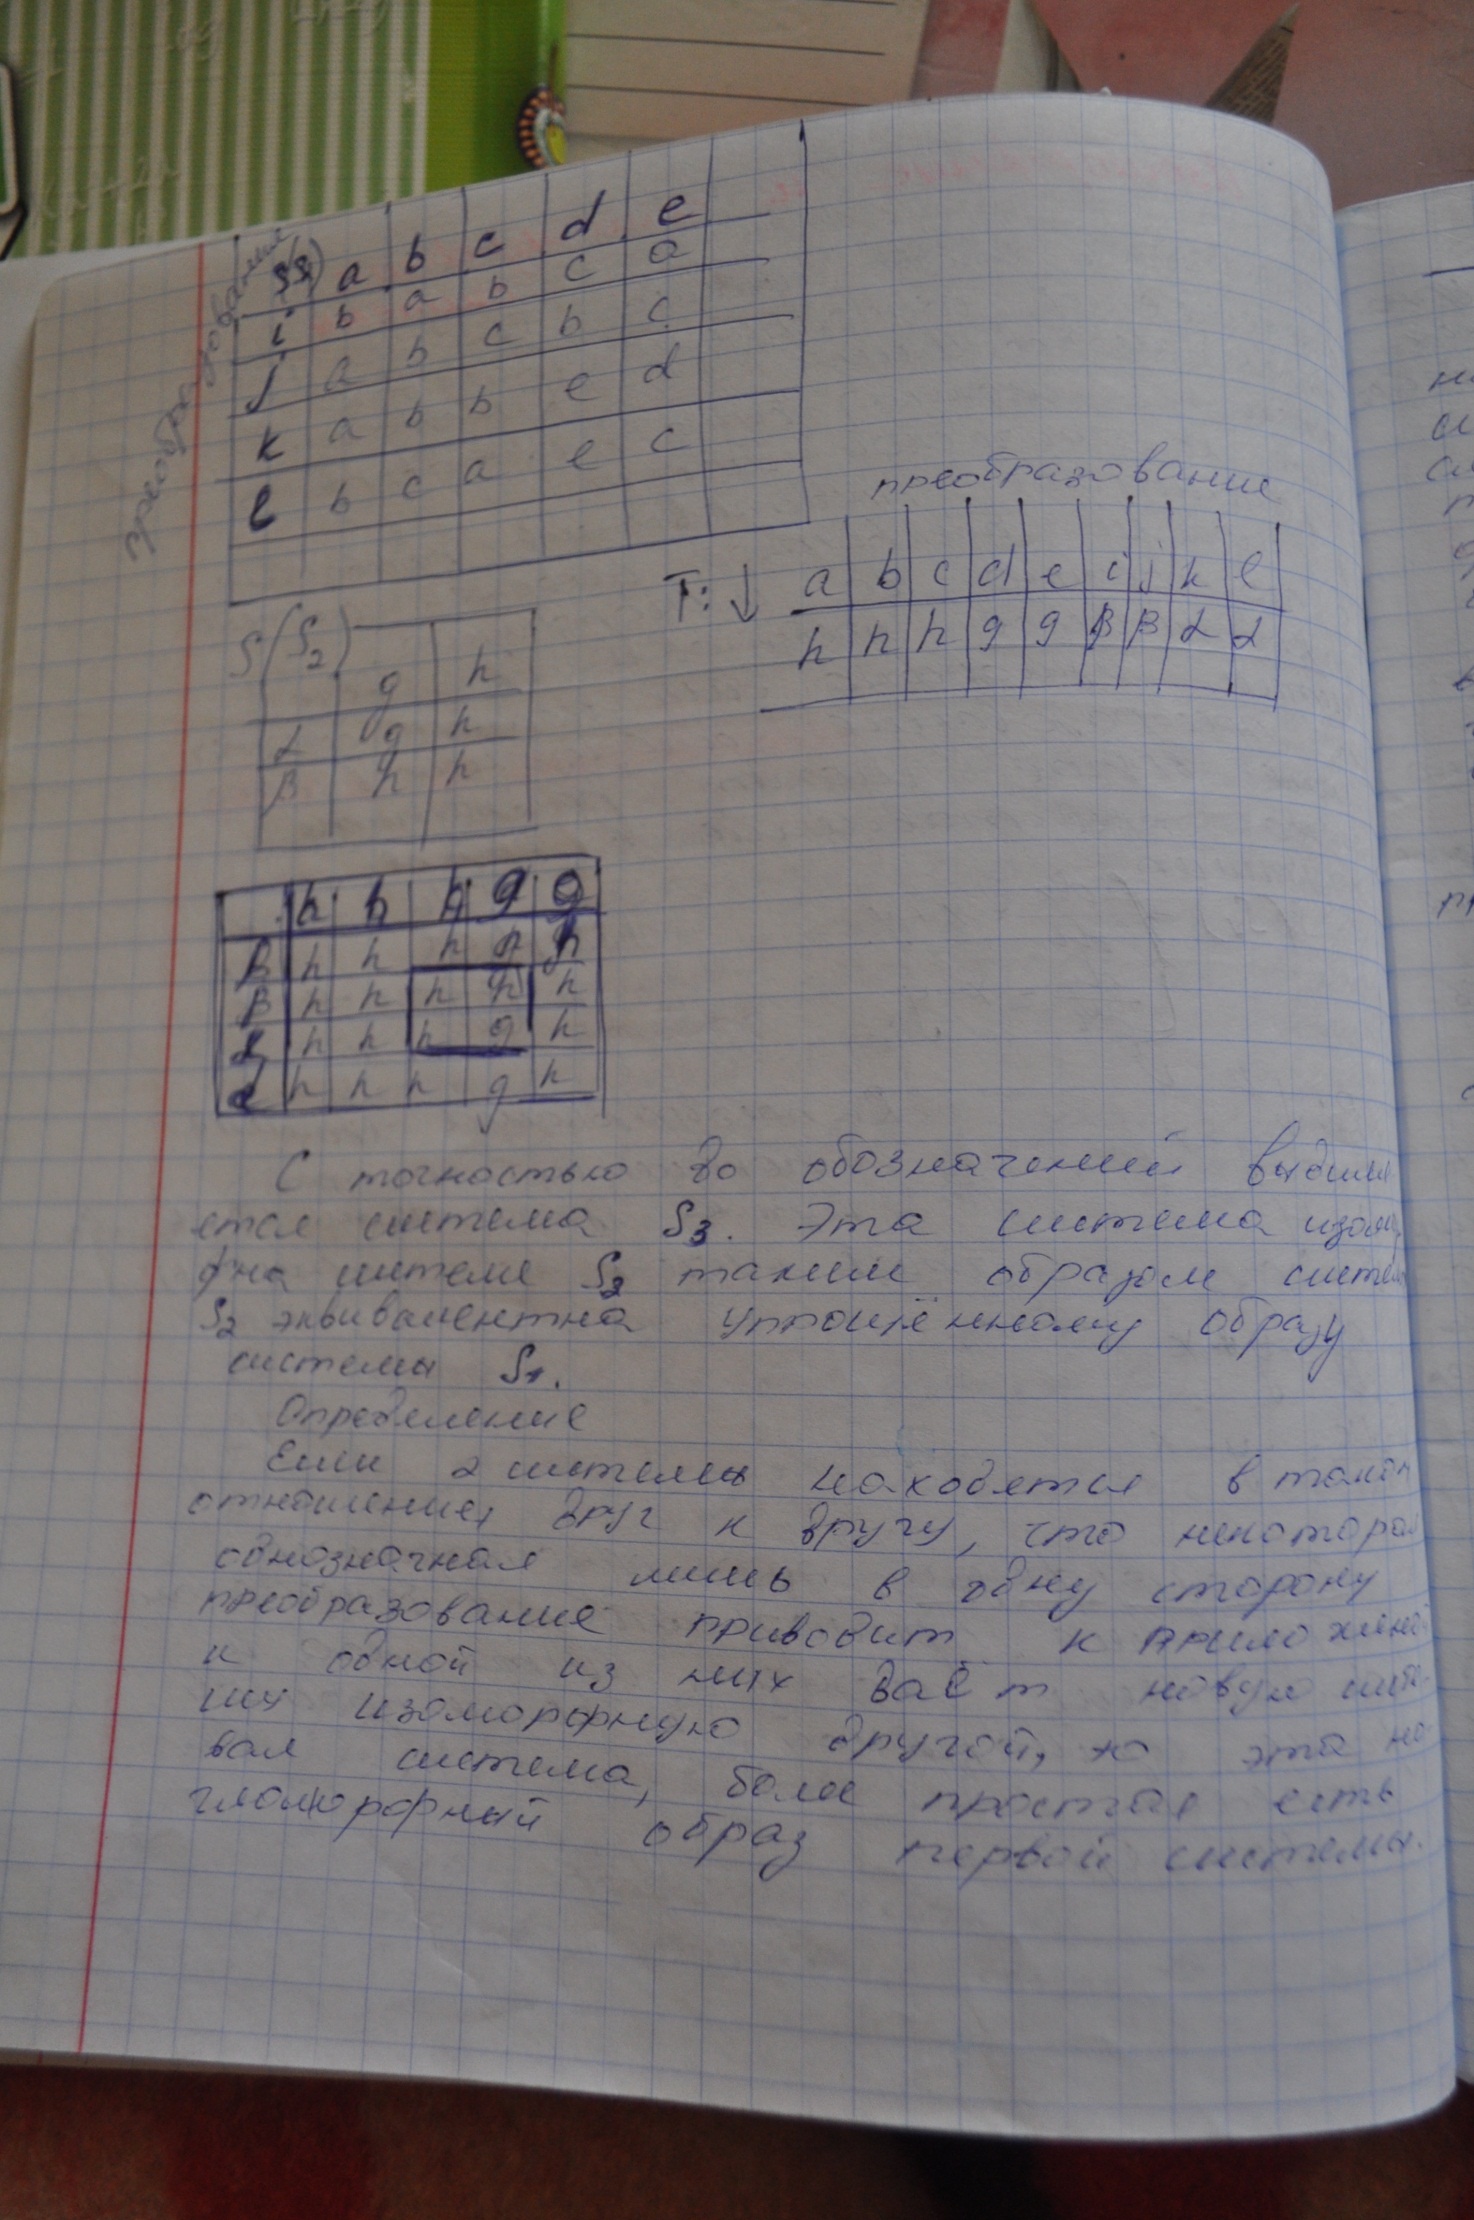 преобразования
S(S1) a b c d e
i b a b c a
j a b c b c
k a b b e d
l b c a e c
преобразование
T: ↓ a b c d e i j k l
h h h g g β β α α
S(S2) g h
α g h
β h h
h h h g g
β h h h h h
β h h h h h
α h h h g h
α h h h g h
С точностью до обозначений выделя
ется система S3. Эта система
системе S2 таким образом систем
S2 эквивалентна упрощённому образу
системы S1.
Определение
Если 2 системы находятся в таком
отношении друг к другу, что некоторая
однозначная лишь в одну сторону
преобразование приводит к
к одной из них даёт новую
изоморфную другой, то эта но-
вая система, более простая есть
гломорфный образ первой системы.